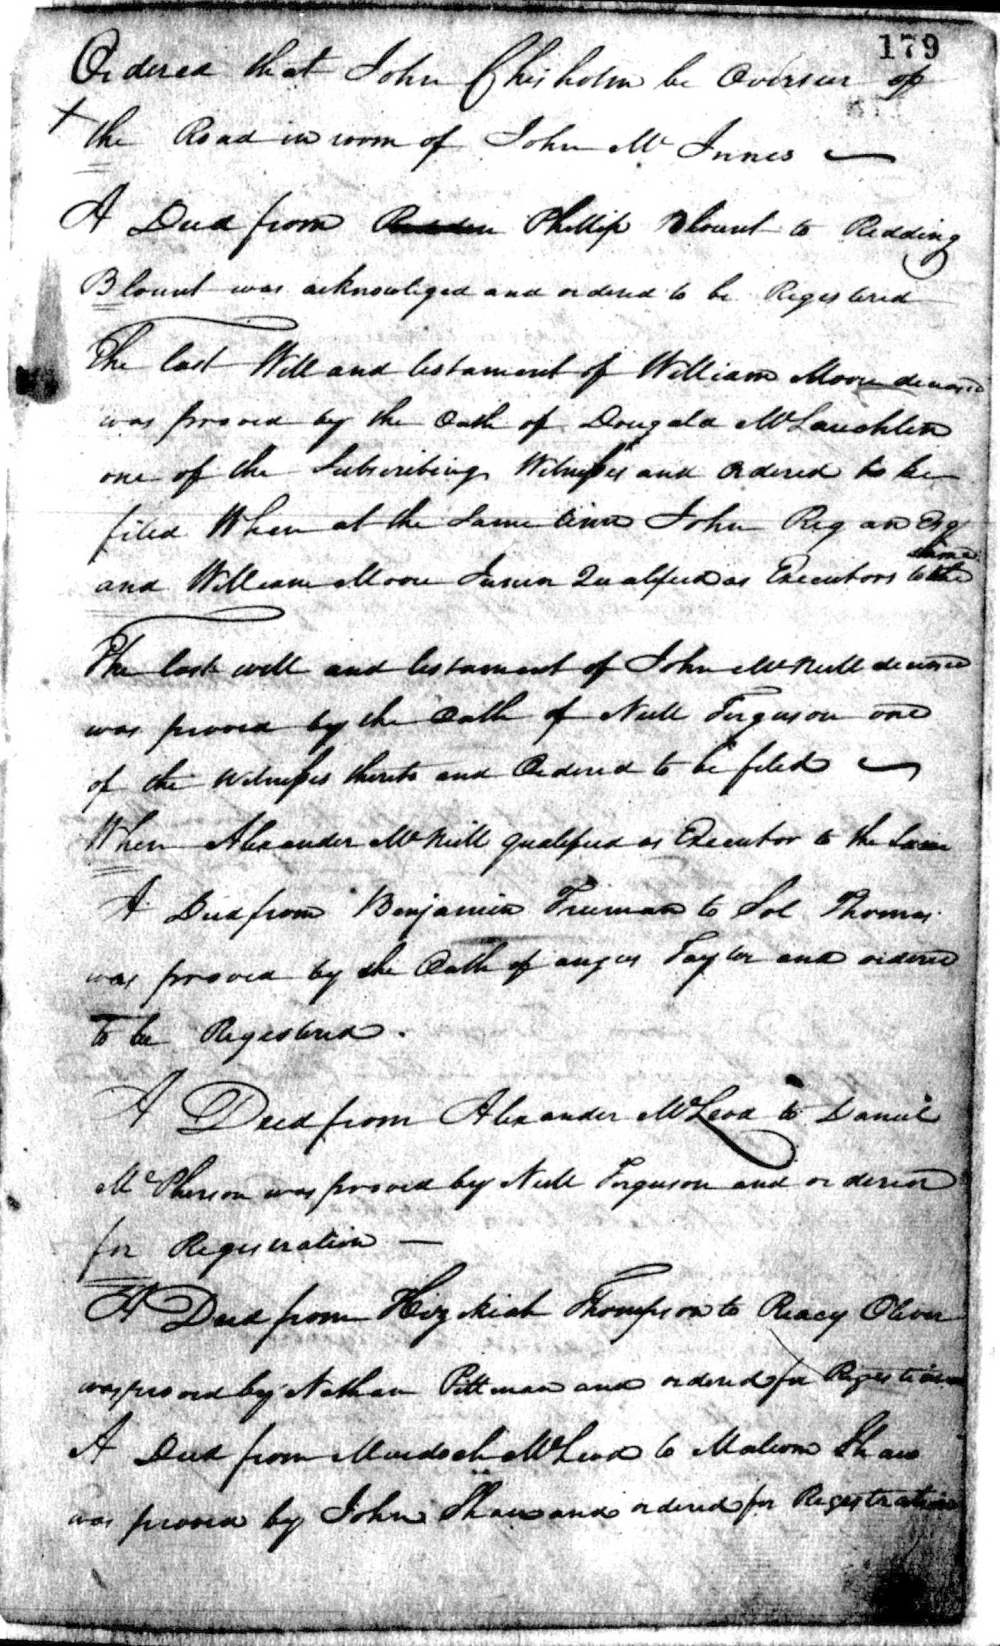 179
Ordered that John Chisholm be Overseer of
the Road in room of John Mc Innes
A Deed from Phillip Blount to Redding
Blount was acknowliged and ordered to be Registered
The last Will and testament of William Moore
was proved by the Oath of Dougald McLauchlin
one of the Subscribing Witnesses and Ordered to be
filed When at the Same time John Regan Esq
and William Moore Junior Qualified as Executors to the
same
The last will and testament of John McNeill
was proved by the Oath of Neill Ferguson one
of the Witnesses thereto and Ordered to be filed
When Alexander McNeill qualified as Executor to the Same
A Deed from Benjamin Freeman to Sol Thomas
was proved by the Oath of angus Taylor and ordered
to be Registered.
A Deed from Alexander McLeod to Daniel
McPherson was proved by Neill Ferguson and ordered
for Registration
A Deed from Hizekiah Thompson to Oliver
was proved by Nathan Pittman and ordered for
A Deed from Murdoch McLeod to Malcom Shaw
was proved by John Shaw and ordered for Registration